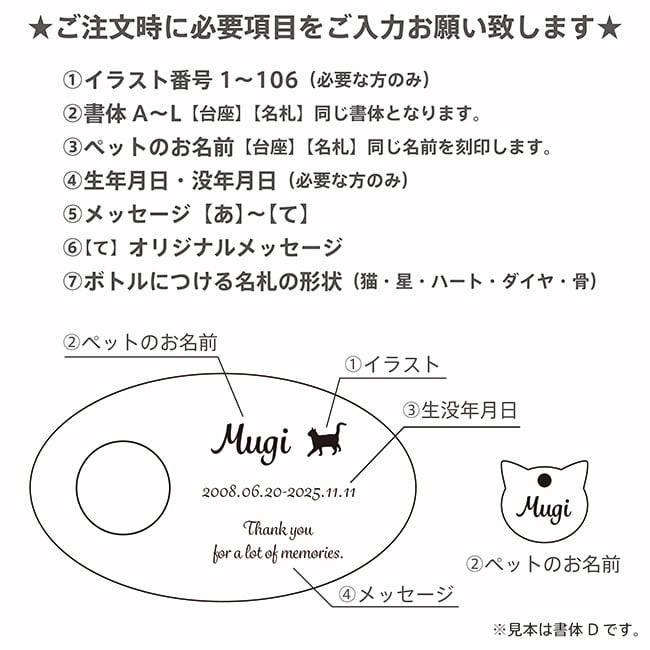 ★ご注文時に必要項目をご入力お願い致します★
①イラスト番号1～106（必要な方のみ）
②書体A～L【台座】【名札】同じ書体となります。
③ペットのお名前【台座】【名札】同じ名前を刻印します。
④生年月日・没年月日（必要な方のみ）
⑤メッセージ【あ】～【て】
⑥【て】オリジナルメッセージ
⑦ボトルにつける名札の形状（猫・星・ハート・ダイヤ・骨）
②ペットのお名前
①イラスト
③生没年月日
Mugi
2008.06.20-2025.11.11
Thank you
for a lot of memories.
④メッセージ
Mugi
②ペットのお名前
※見本は書体Dです。